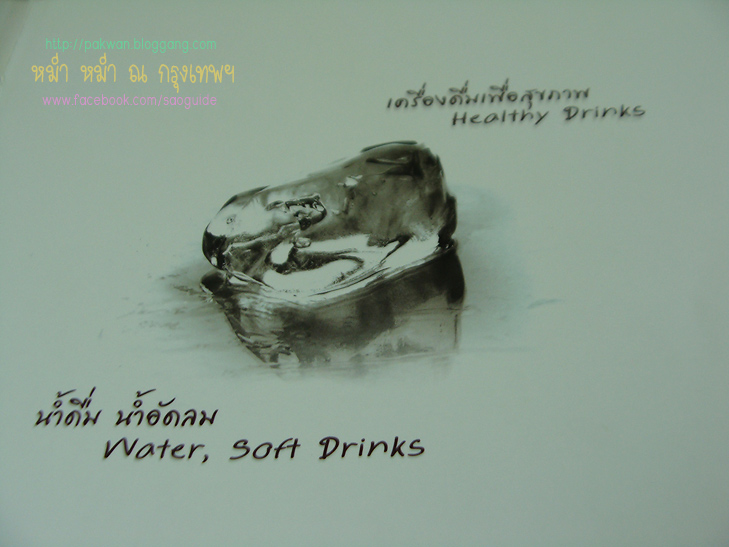 http://pakwan.bloggang.com
หม่ำ หม่ำ ณ กรุงเทพฯ
www.facebook.com/saoguide
เครื่องดื่มเพื่อสุขภาพ
Healthy Drinks
น้ำดื่ม น้ำอัดลม
Water, Soft Drinks